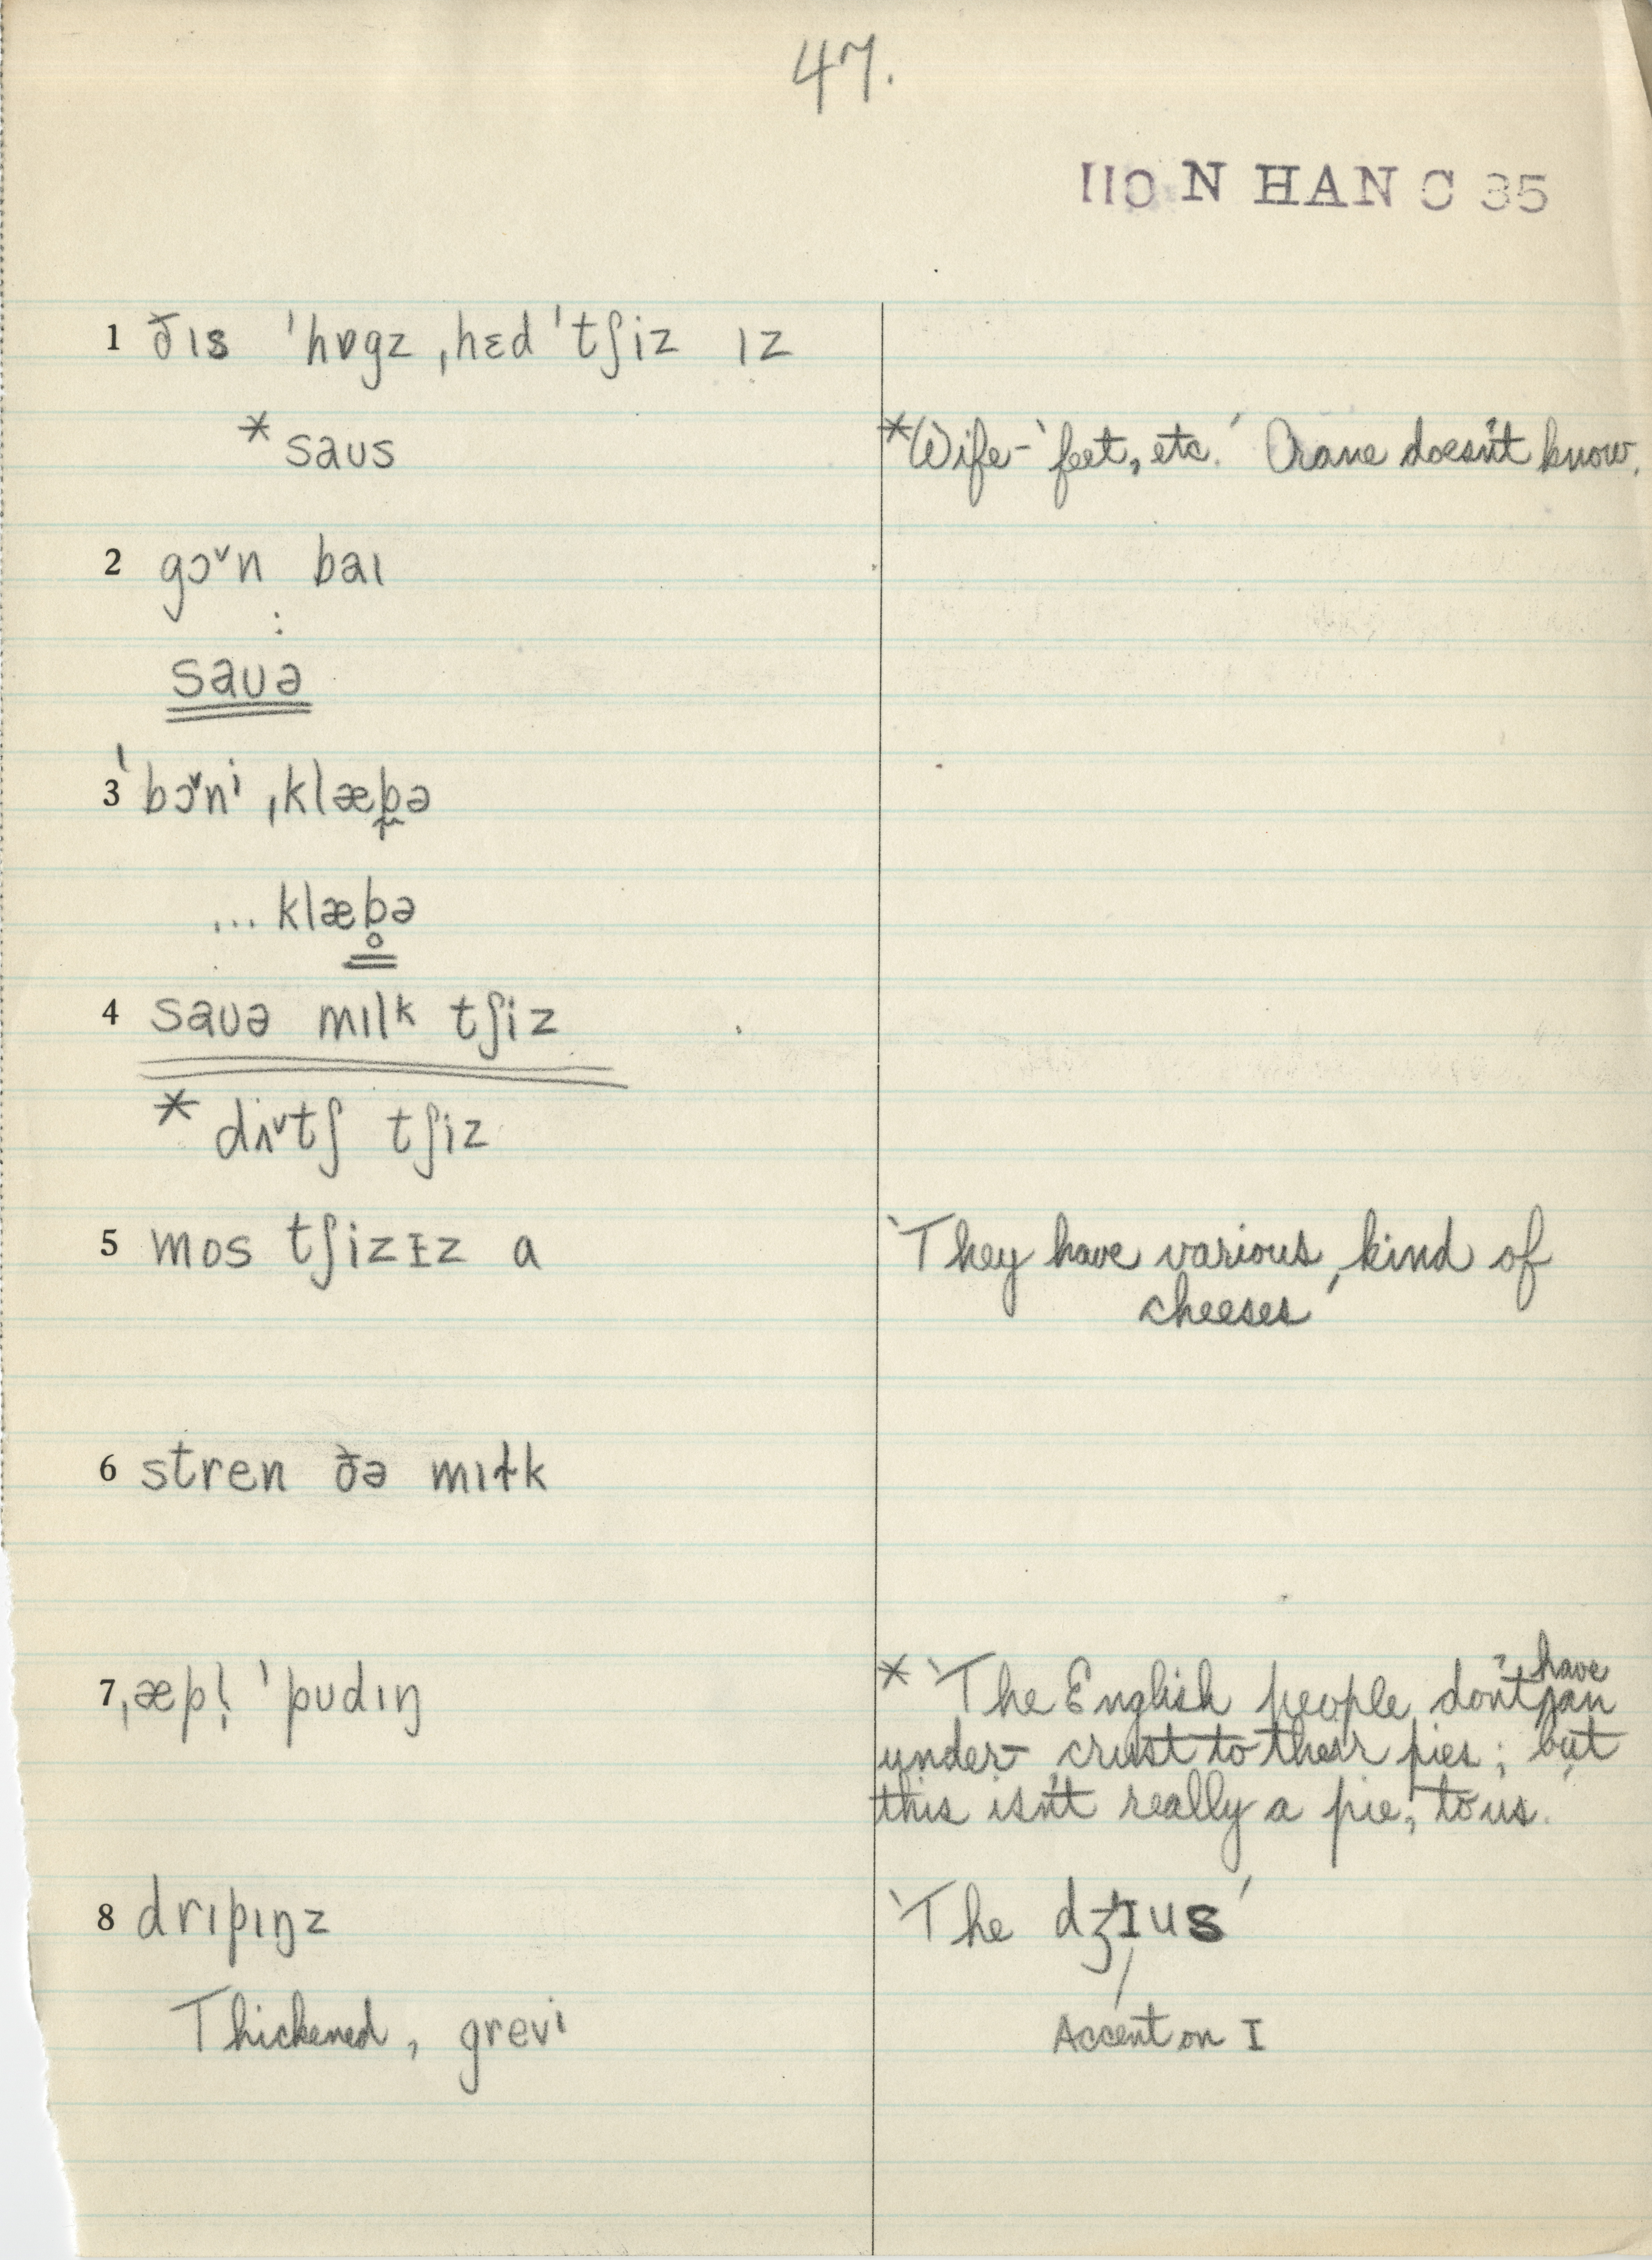 47.
IIO N HAN C 35
1 ðɪs ˈhɒgz ˌhɛd ˈtʃiz ɪz
* saus *Wife - 'feet, etc.' Crane doesn't know.
2 gɔ˅n baɪ
:
sauə
3 ˈbɔ˅nⁱ ˌklæb̬ə
... klæb̥ə
4 sauə mɪlᵏ tʃiz
* dʌ˅tʃ tʃiz
5 mos tʃizɪz a 'They have various kind of
cheeses'
6 stren ðə mɪɫk
7 ˌæpl̩ ˈpudɪŋ * 'The English people don't have an
under-crust to their pies; but
this isn't really a pie, to us.'
8 drɪpɪŋz 'The dʒɪus'
Thickened, grevⁱ Accent on I